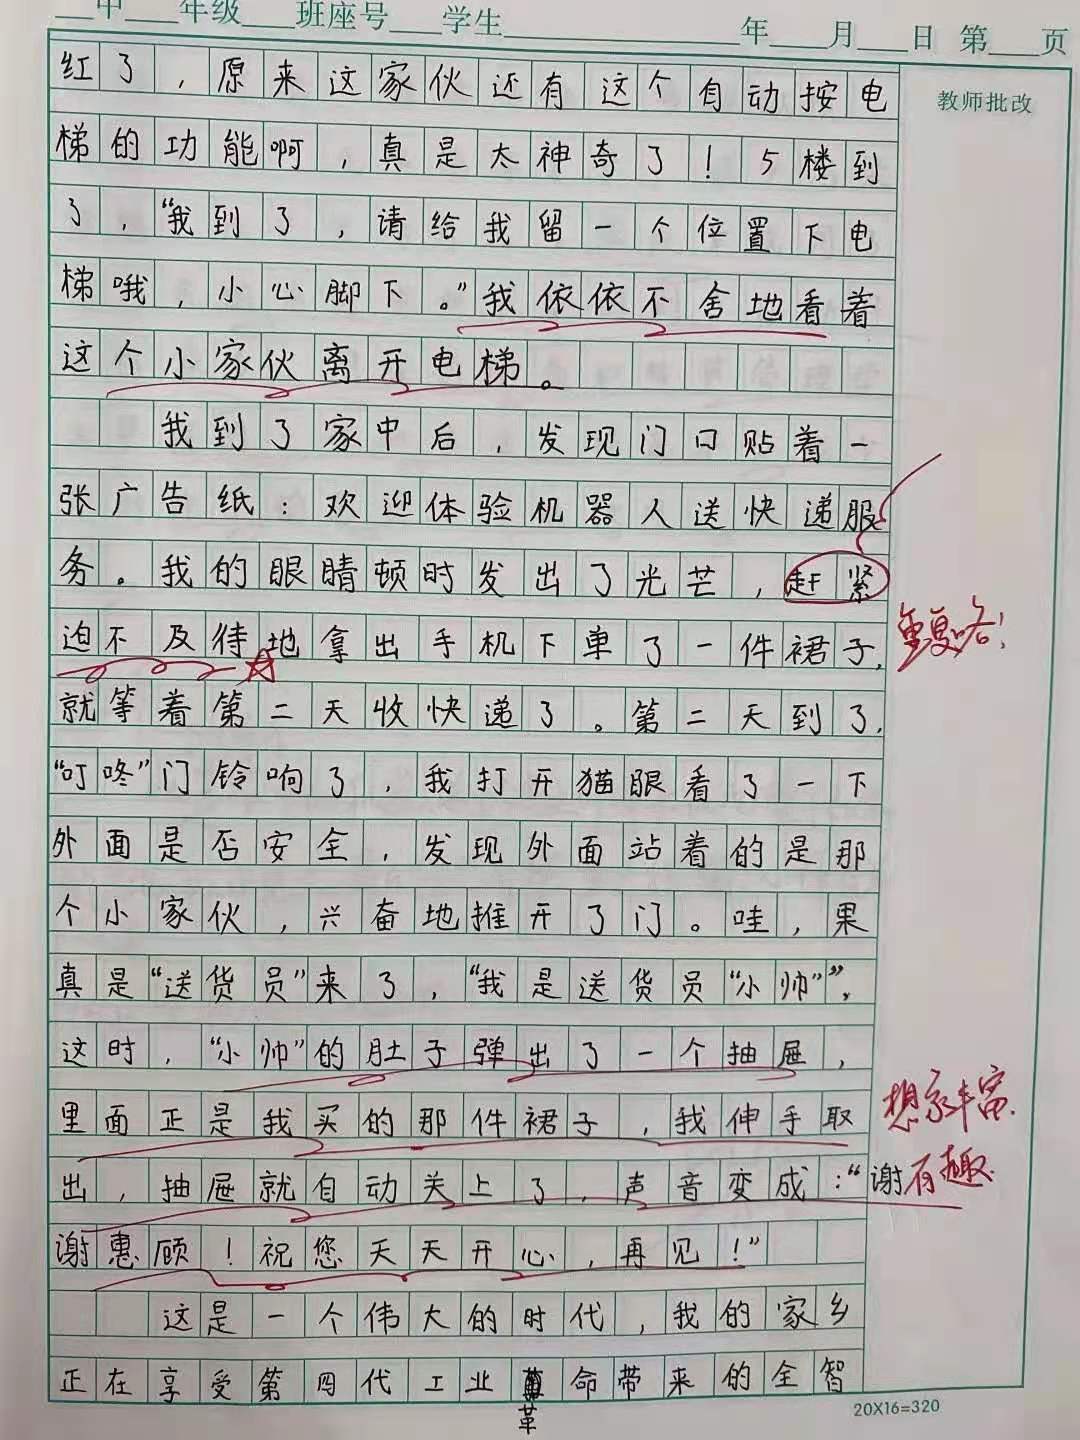 中___年级___班座号___学生___年___月___日 第___页
教师批改
红了,原来这家伙还有这个自动按电
梯的功能啊,真是太神奇了!5楼到
了,“我到了,请给我留一个位置下电
梯哦,小心脚下。”我依依不舍地看着
这个小家伙离开电梯。
我到了家中后,发现门口贴着一
张广告纸:欢迎体验机器人送快递服
务。我的眼睛顿时发出了光芒,赶紧
迫不及待地拿出手机下单了一件裙子,
重复啦!
就等着第二天收快递了。第二天到了,
“叮咚”门铃响了,我打开猫眼看了一下
外面是否安全,发现外面站着的是那
个小家伙,兴奋地推开了门。哇,果
真是“送货员”来了,“我是送货员“小帅””,
这时,“小帅”的肚子弹出了一个抽屉,
里面正是我买的那件裙子,我伸手取
想象丰富.
出,抽屉就自动关上了,声音变成:“谢
有趣.
谢惠顾!祝您天天开心,再见!”
这是一个伟大的时代,我的家乡
正在享受第四代工业命带来的全智
革
20X16=320